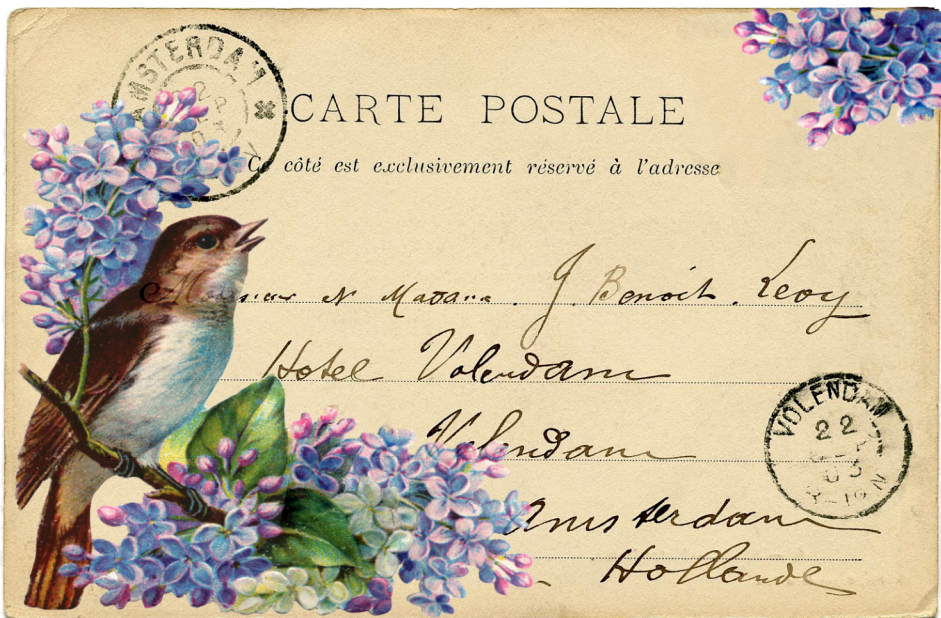 AMSTERDAM
22
CARTE POSTALE
Ce côté est exclusivement réservé à l'adresse
Monsieur et Madame J. Benoit. Levy
Hotel Volendam
Volendam
VOLENDAM
22
03
Amsterdam
Hollande